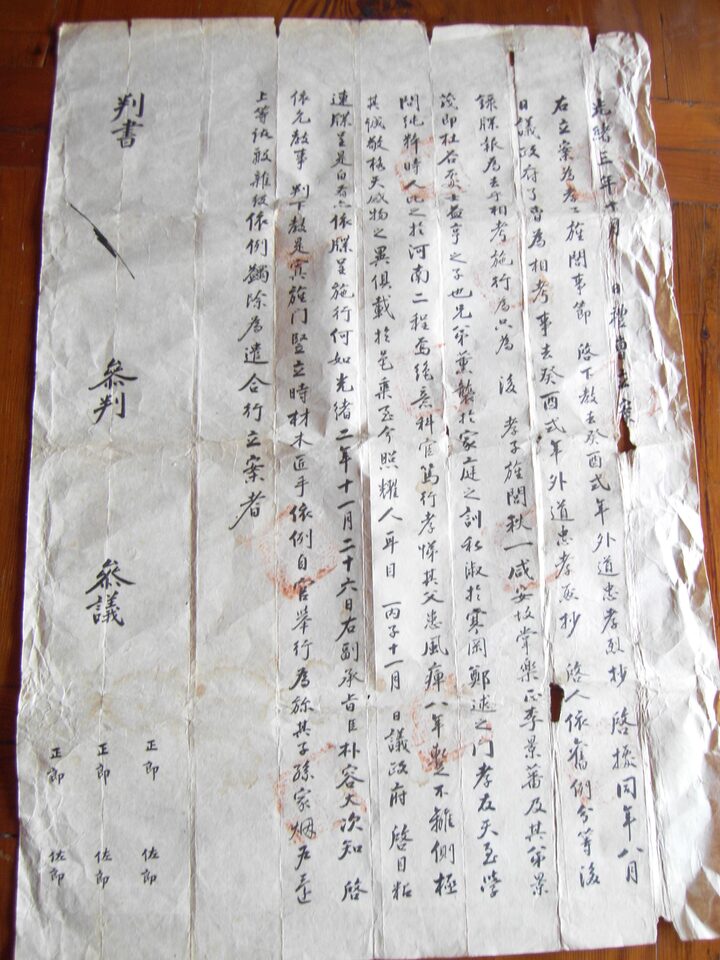 光緖三年十月 日禮曹立案
右立案爲孝子旌閭事節 啓下敎去癸酉式年外道忠孝烈抄 啓據同年八月
日議政府了 爲相考事去癸酉式年外道忠孝烈抄 啓人依舊例分等後
錄牒報爲去乎相考施行爲只爲 後 孝子旌閭秩一咸安故掌樂正李景蕃及其弟景
茂卽杜谷 士 亨之子也兄弟薰 於家庭之訓私淑於寒岡鄭逑之門孝友天至學
問純粹時人比之於河南二程焉絶意科宦篤行孝悌其父患風痺八年暫不離側極
其誠敬格天感物之異俱載於邑乘至今照耀人耳目 丙子十一月 日議政府 啓目粘
連牒呈是白有亦依牒呈施行何如光緖二年十一月二十六日右副承旨臣朴容大次知 啓
依允敎事 判下敎是 旌門竪立時材木匠手依例自官擧行爲 其子孫家烟戶還
上等諸般雜役依例蠲除爲遣合行立案者
判書 參判 參議
正郞 佐郞
正郞 佐郞
正郞 佐郞